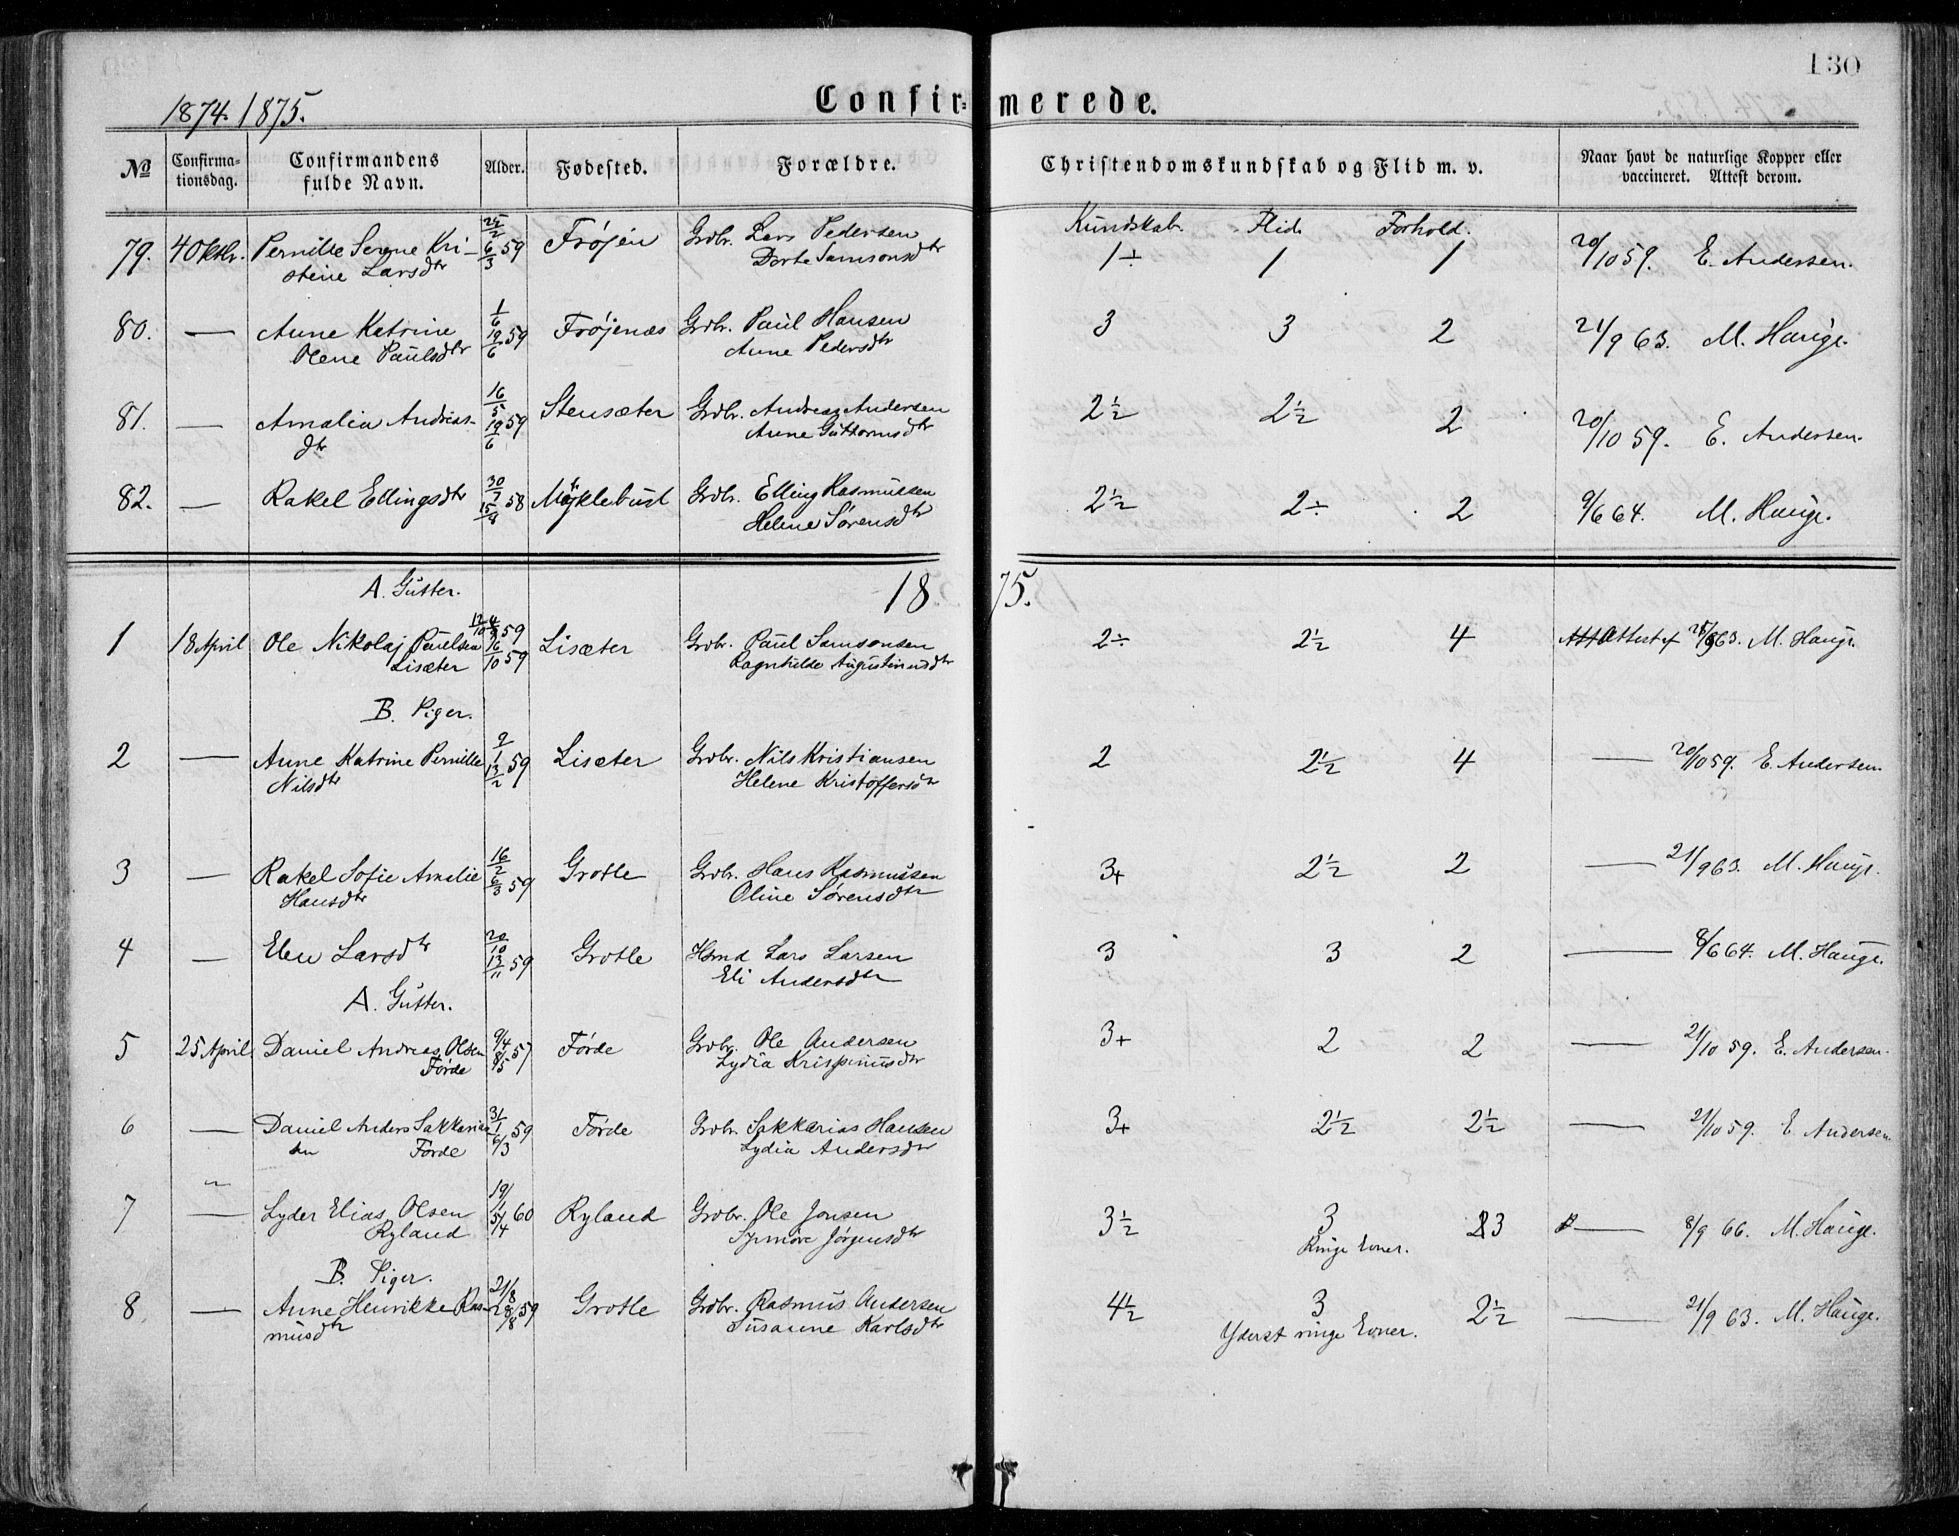 130
1874. 1875.
Confir=merede.
No Confirmationsdag. Confirmandens fulde Navn. Alder. Fødested. Forældre. Christendomskundskab og Flid m. v. Naar havt de naturlige Kopper eller vaccineret. Attest derom.
Kundskab. Flid. Forhold.
79. 4 Oktbr. Pernille Serene Kri- 25/2 6/3 59 Frøjen Grdbr. Lars Pedersen 1÷ 1 1 20/10 59. E. Andersen.
stine Larsdtr Dorte Samsonsdtr
80. — Anne Katrine 1/6 19/6 59 Frøjenæs Grdbr. Paul Hansen 3 3 2 21/9 63. M. Hauge.
Olene Paulsdtr Anne Pedersdtr
81. — Amalia Andreas- 16/5 19/6 59 Stensæter Grdbr. Andreas Andersen 2½ 2½ 2 20/10 59. E. Andersen.
dtr Anne Guttormsdtr
82. — Rakel Ellingsdtr 30/7 15/8 58 Myklebust Grdbr. Elling Rasmussen 2½ 2÷ 2 9/6 64. M. Hauge.
Helene Sørensdtr
1875.
A. Gutter.
1 18 April Ole Nikolaj Paulsen 59 16/10 59 Lisæter Grdbr. Paul Samsonsen 2÷ 2½ 4 Attest 63. M. Hauge.
Lisæter Ragnhilde Augustinusdtr
B. Piger.
2 — Anne Katrine Pernille 9/1 13/2 59 Lisæter Grdbr. Nils Kristiansen 2 2½ 4 — 20/10 59. E. Andersen.
Nilsdtr Helene Kristoffersdtr
3 — Rakel Sofie Amelie 16/2 6/3 59 Grotle Grdbr. Hans Rasmussen 3+ 2½ 2 — 21/9 63. M. Hauge.
Hansdtr Oline Sørensdtr
4 — Elen Larsdtr 20/10 13/11 59 Grotle Hsmd Lars Larsen 3 3 2 — 8/6 64. M. Hauge.
Eli Andersdtr
A. Gutter.
5 25 April Daniel Andreas Olsen 9/4 8/5 57 Førde Grdbr. Ole Andersen 3+ 2 2 — 21/10 59. E. Andersen.
Førde Lydia Krispinusdtr
6 — Daniel Anders Sakkarias- 31/1 6/3 59 Førde Grdbr. Sakkarias Hansen 3+ 2½ 2½ — 21/10 59. E. Andersen
sen Førde Lydia Andersdtr
7 — Lyder Elias Olsen 19/1 5/4 60 Ryland Grdbr. Ole Jonsen 3½ 3 3 — 8/9 66. M. Hauge.
Ryland Synnøve Jørgensdtr Ringe Evner.
B. Piger.
8 — Anne Henrikke Ras- 21/8 28/8 59 Grotle Grdbr. Rasmus Andersen 4½ 3 2½ — 21/9 63. M. Hauge.
musdtr Susanne Karlsdtr Yderst ringe Evner.